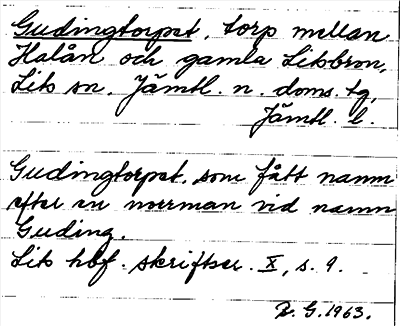 Gudingtorpet, torp mellan
Halån och gamla Litsbron,
Lits sn. Jämtl. n. doms. tg,
Jämtl. l.
Gudingtorpet. som fått namn
efter en norrman vid namn
Guding.
Lits hbf. skriftser. X, s. 9.
R. G. 1963.